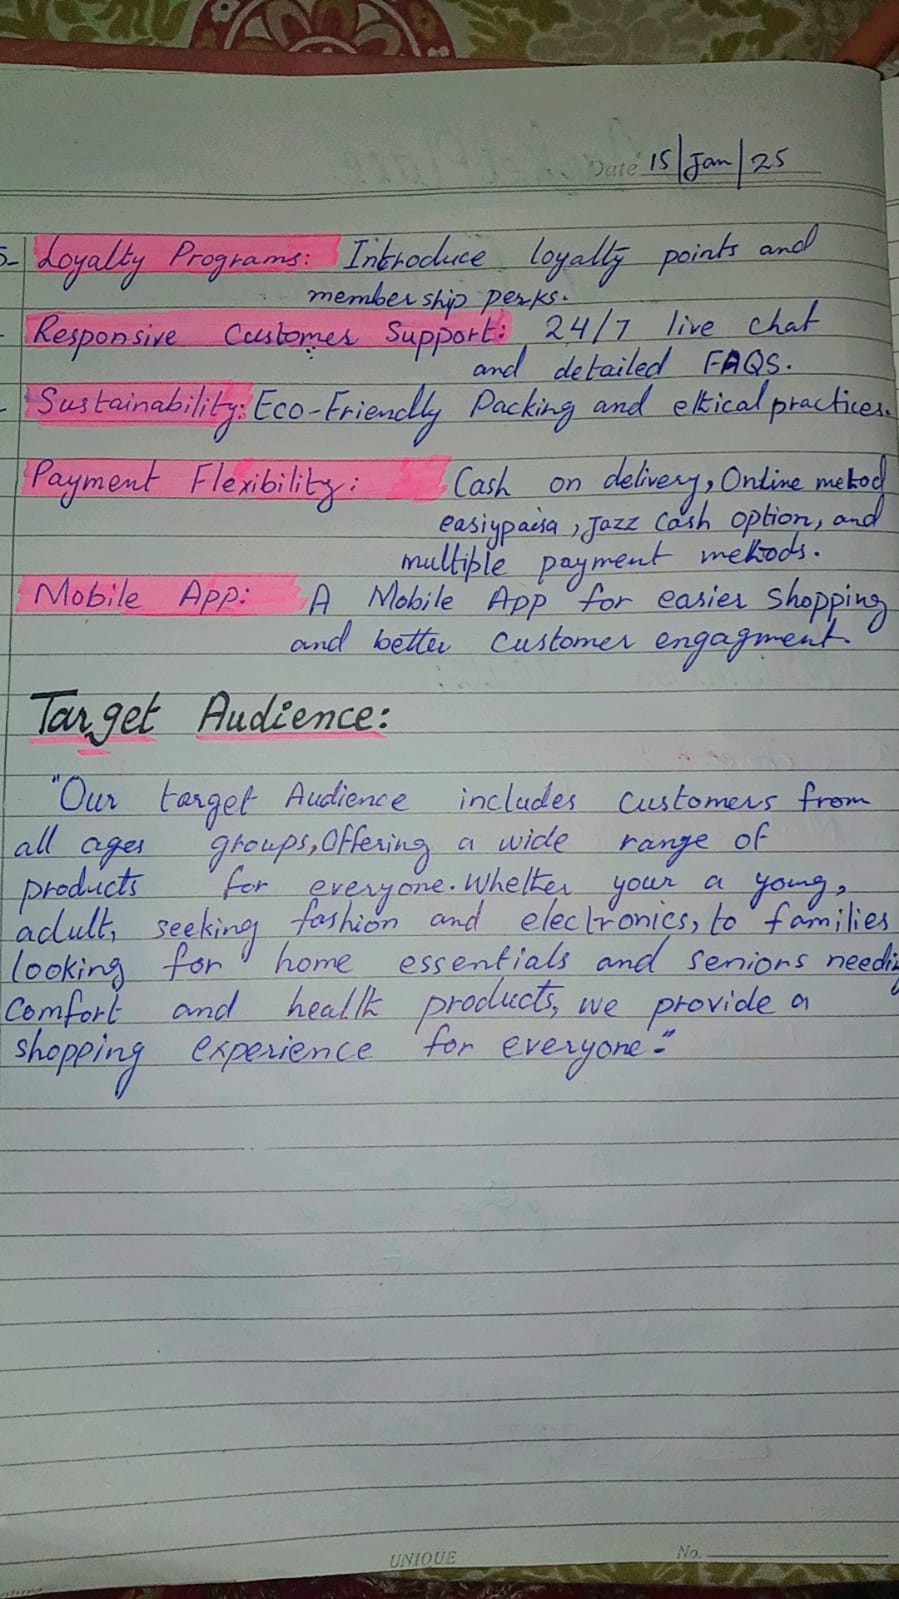 Date 15/Jan/25
5- Loyalty Programs: Introduce loyalty points and
membership perks.
- Responsive Customer Support: 24/7 live chat
and detailed FAQS.
- Sustainability: Eco-Friendly Packing and ethical practices.
Payment Flexibility: Cash on delivery, Online method
easiypaisa, Jazz cash option, and
multiple payment methods.
Mobile App: A Mobile App for easier shopping
and better customer engagment.
Target Audience:
"Our target Audience includes customers from
all ages groups, Offering a wide range of
products for everyone. Whether your a young,
adult, seeking fashion and electronics, to families
looking for home essentials and seniors needin
Comfort and health products, we provide a
shopping experience for everyone."
UNIQUE No.